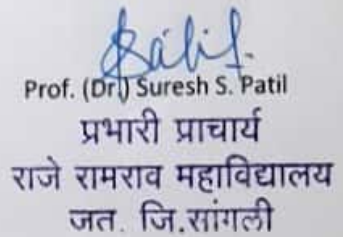 Prof. (Dr.) Suresh S. Patil
प्रभारी प्राचार्य
राजे रामराव महाविद्यालय
जत. जि.सांगली